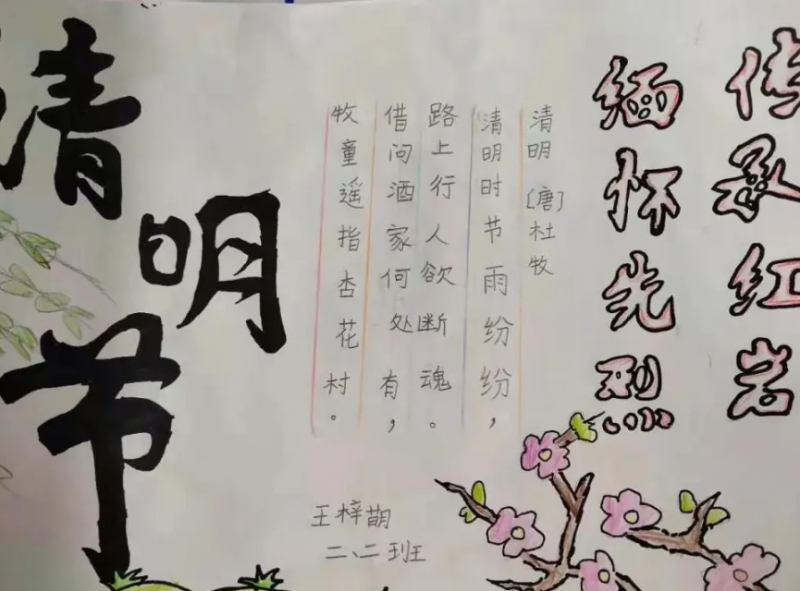 传承红岩
缅怀先烈
清明 [唐]杜牧
清明时节雨纷纷，
路上行人欲断魂。
借问酒家何处有，
牧童遥指杏花村。
王梓萌
二、二班
清明节